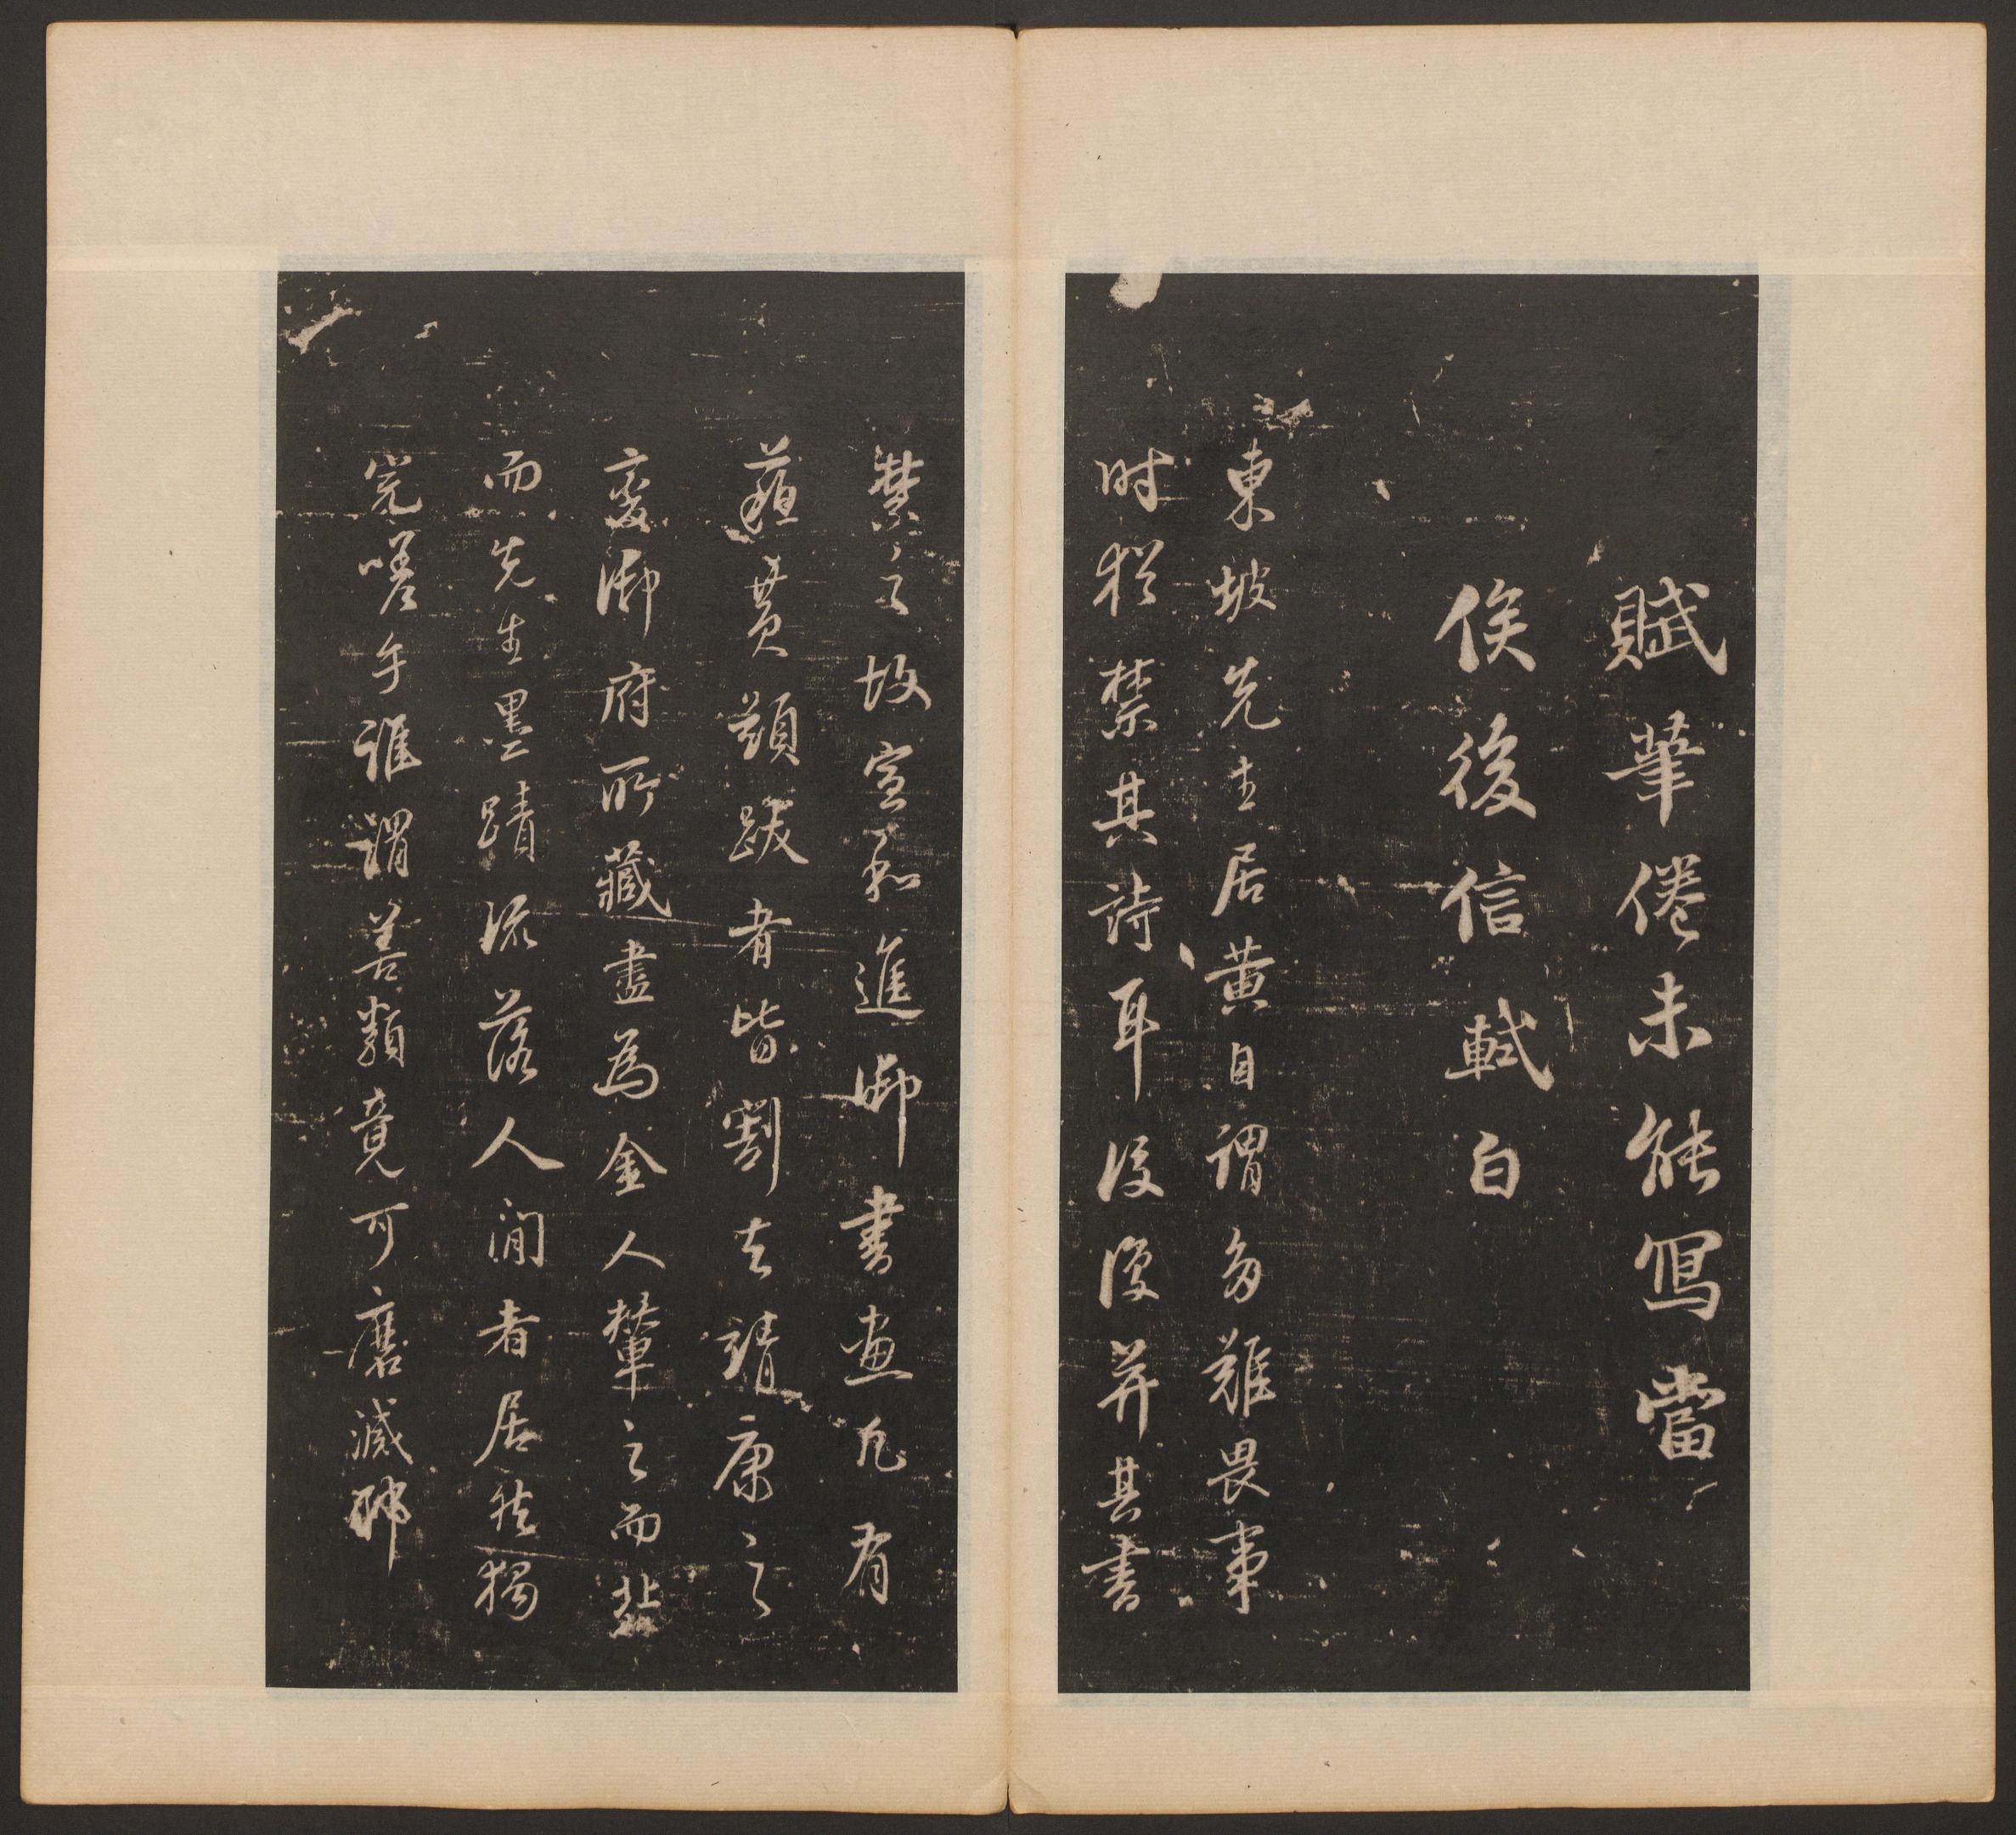 賦筆倦未能寫當
俟後信軾白
東坡先生居黃自謂多難畏事
时猶禁其詩耳後復并其書
禁之故宣和進御書畫凡有
蘇黃題跋者皆割去靖康之
變御府所藏盡為金人輦之而北
而先生墨蹟流落人間者居然獨
完嗟乎誰謂善類竟可磨滅耶